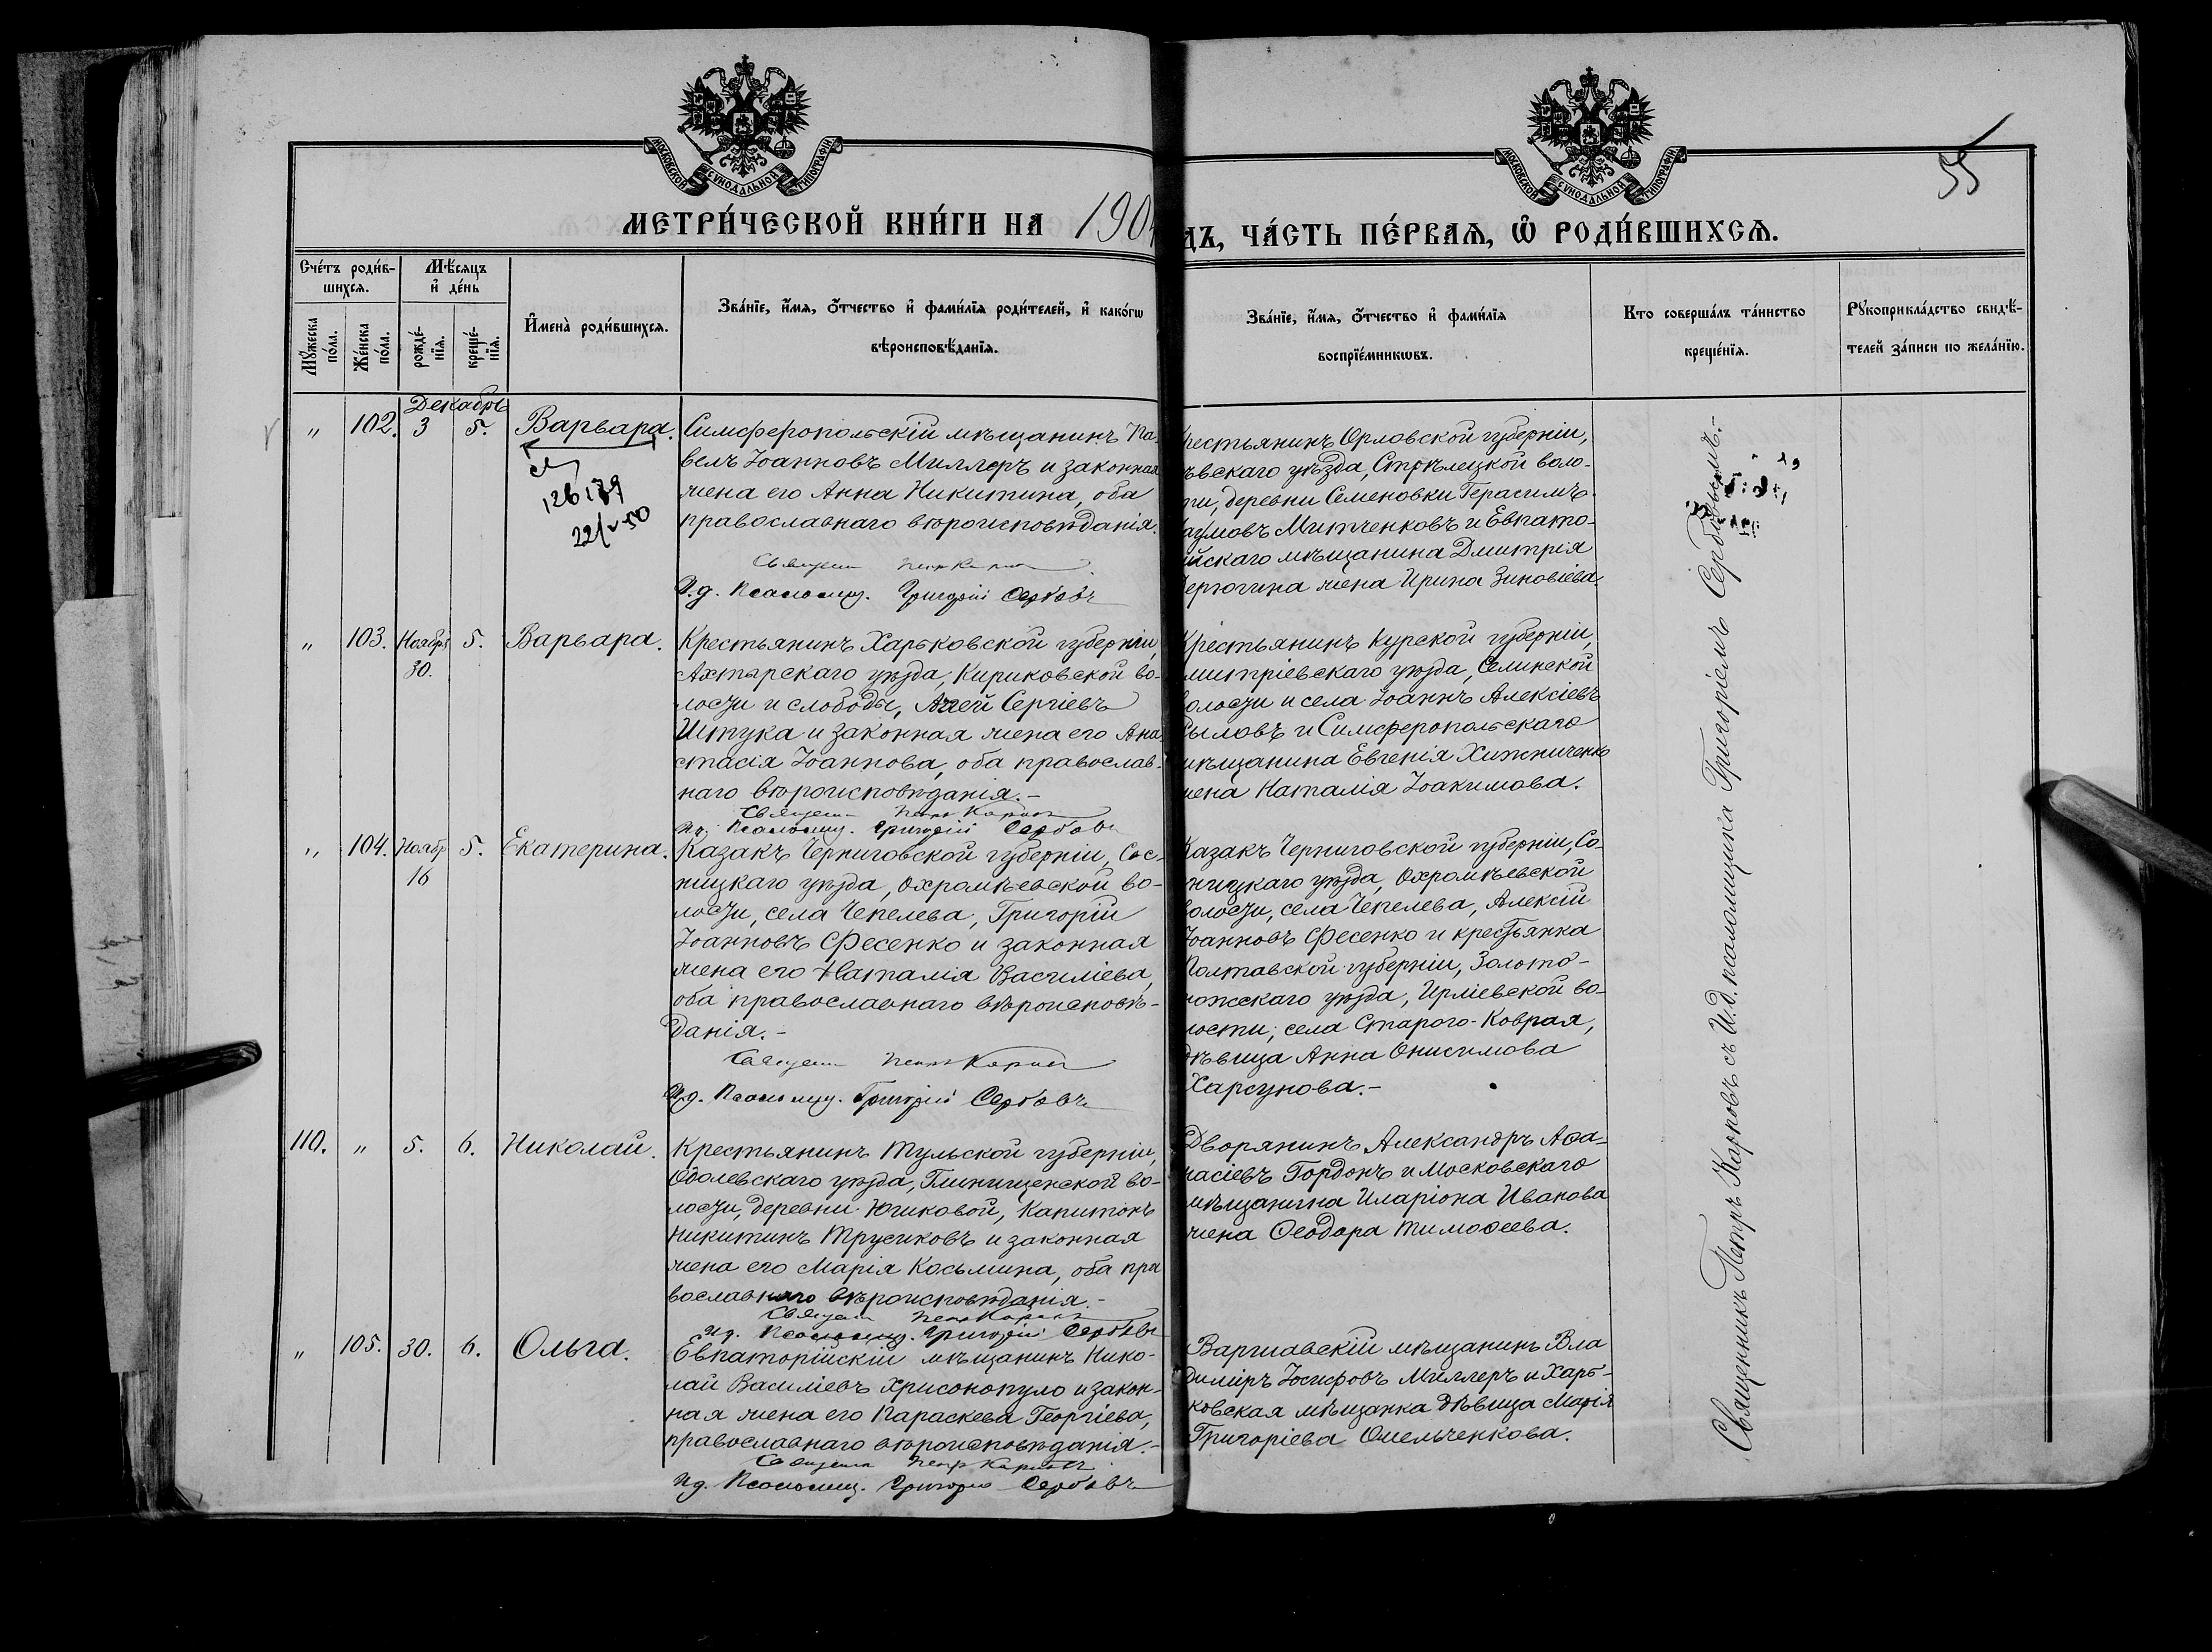 МОСКОВСКОЙ СУНОДАЛЬНОЙ ТИПОГРАФІИ
МОСКОВСКОЙ СУНОДАЛЬНОЙ ТИПОГРАФІИ
55
МЕТРИ́ЧЕСКОЙ КНИ́ГИ НА 1904
ДЪ, ЧА́СТЬ ПЕ́РВАѦ, Ѡ҆ РОДИ́ВШИХСѦ.
Сче́тъ роди́в-
шихсѧ.
Мѣ́сѧцъ
и҆ де́нь
Мꙋ́жеска
по́ла.
Же́нска
по́ла.
рожде́-
нїѧ.
креще́-
нїѧ.
И҆мена̀ роди́вшихсѧ.
Зва́нїе, и҆́мѧ, ѻ҆́тчество и҆ фами́лїѧ роди́телей, и҆ како́гѡ
вѣроисповѣ́данїѧ.
Зва́нїе, и҆́мѧ, ѻ҆́тчество и҆ фами́лїѧ
воспрїе́мникѡвъ.
Кто соверша́лъ та́инство
креще́нїѧ.
Рꙋкоприкла́дство свидѣ́-
телей за́писи по жела́нїю.
Декабрь
" 102. 3 5. Варвара.
126179
22/V-50
Симферопольскій мѣщанинъ Па-
велъ Іоанновъ Миллеръ и законная
жена его Анна Никитина, оба
православнаго вѣроисповѣданія.
Священ Петръ Карповъ
И.д. Псаломщ. Григорій Сербовъ
рестьянинъ Орловской губерніи,
ьвскаго уѣзда, Стрѣлецкой воло-
ти, деревни Семеновки Герасимъ
аумовъ Митченковъ и Евпато-
ійскаго мѣщанина Дмитрія
ерюгина жена Ирина Зиновіева.
" 103. Ноября 5. Варвара.
30.
Крестьянинъ Харьковской губерніи,
Ахтырскаго уѣзда, Кириковской во-
лости и слободы, Агей Сергіевъ
Штука и законная жена его Ана
стасія Іоаннова, оба православ-
наго вѣроисповѣданія.-
Священ Петръ Карповъ
И.д. Псаломщ. Григорій Сербовъ
Крестьянинъ Курской губерніи,
митріевскаго уѣзда, Селинской
олости и села Іоаннъ Алексіевъ
ыловъ и Симферопольскаго
мѣщанина Евгенія Хижниченко
жена Наталія Іоакимова.
" 104. Ноябр 5. Екатерина.
16
Казакъ Черниговской губерніи, Сос-
ницкаго уѣзда, Охромѣевской во-
лости, села Чепелева, Григорій
Іоанновъ Фесенко и законная
жена его Наталія Василіева,
оба православнаго вѣроисповѣ-
данія.-
Священ Петръ Карповъ
И.д. Псаломщ. Григорій Сербовъ
Казакъ Черниговской губерніи, Со
ницкаго уѣзда, Охромѣевской
олости, села Чепелева, Алексій
Іоанновъ Фесенко и крестьянка
Полтавской губерніи, Золото-
ножскаго уѣзда, Ирліевской во-
лости, села Старого-Коврая,
дѣвица Анна Онисимова
Харсунова.-
110. " 5. 6. Николай.
Крестьянинъ Тульской губерніи,
Одоевскаго уѣзда, Глинищенской во-
лости, деревни Югиковой, Капитонъ
Никитинъ Трусиковъ и законная
жена его Марія Косьмина, оба пра
вославнаго вѣроисповѣданія.-
Священ Петръ Карповъ
И.д. Псаломщ. Григорій Сербовъ
Дворянинъ Александръ Аѳа-
насіевъ Гордонъ и Московскаго
мѣщанина Иларіона Иванова
жена Ѳеодора Тимоѳеева.
" 105. 30. 6. Ольга.
Евпаторійскій мѣщанинъ Нико-
лай Василіевъ Хрисонопуло и закон-
ная жена его Параскева Георгіева,
православнаго вѣроисповѣданія.-
Священ Петръ Карповъ
И.д. Псаломщ. Григорій Сербовъ
Варшавскій мѣщанинъ Вла
диміръ Іосифовъ Миллеръ и Харь-
ковская мѣщанка дѣвица Марія
Григоріева Омельченкова.
Священникъ Петръ Карповъ съ И.д. псаломщика Григоріемъ Сербовымъ.-